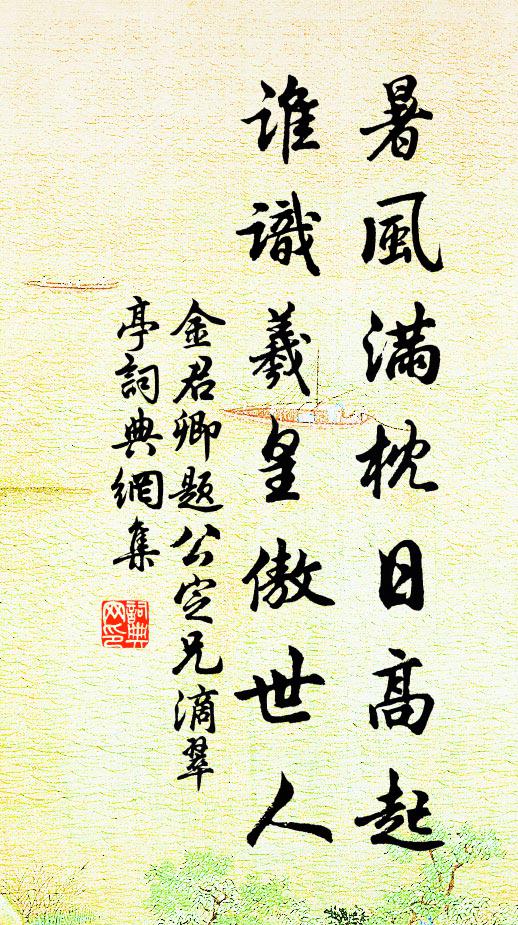 暑風滿枕日高起
誰識羲皇傲世人
金君卿題公定兄滴翠
亭詞典網集
詞典
网印